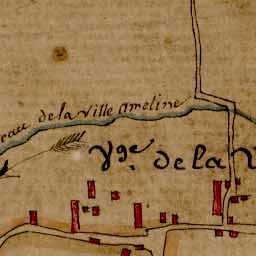 eau de la Ville ameline
Vge. de la V